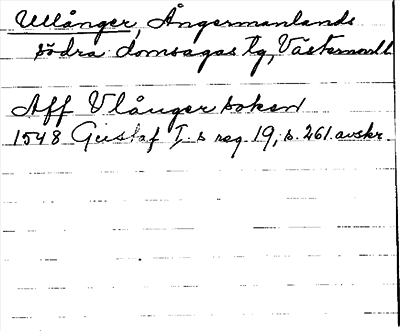 Ullånger, Ångermanlands
södra domsagas tg, Västernorrl
Aff Vlånger soken
1548 Gustaf I.s reg. 19, s. 261. avskr.